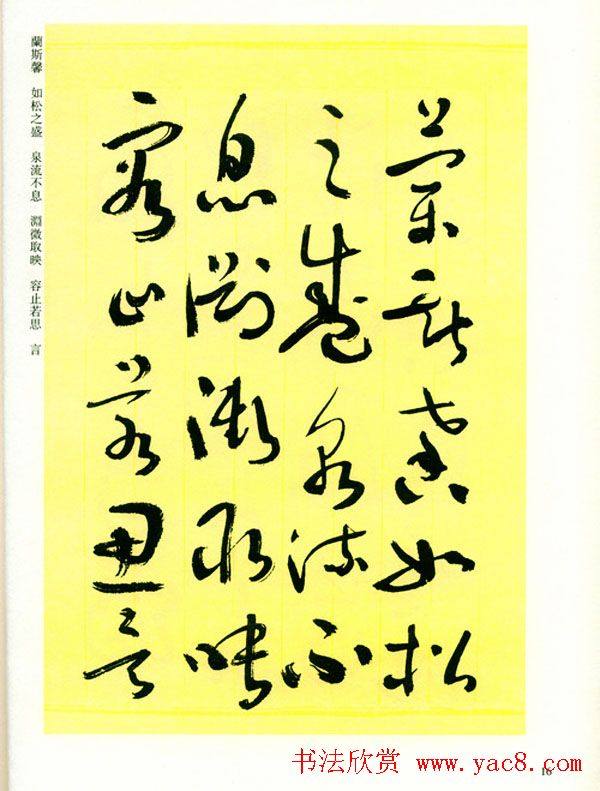 蘭斯馨如松
之盛泉流不
息淵澂取映
容止若思言
蘭斯馨 如松之盛 泉流不息 淵微取映 容止若思 言
16
书法欣赏 www.yac8.com